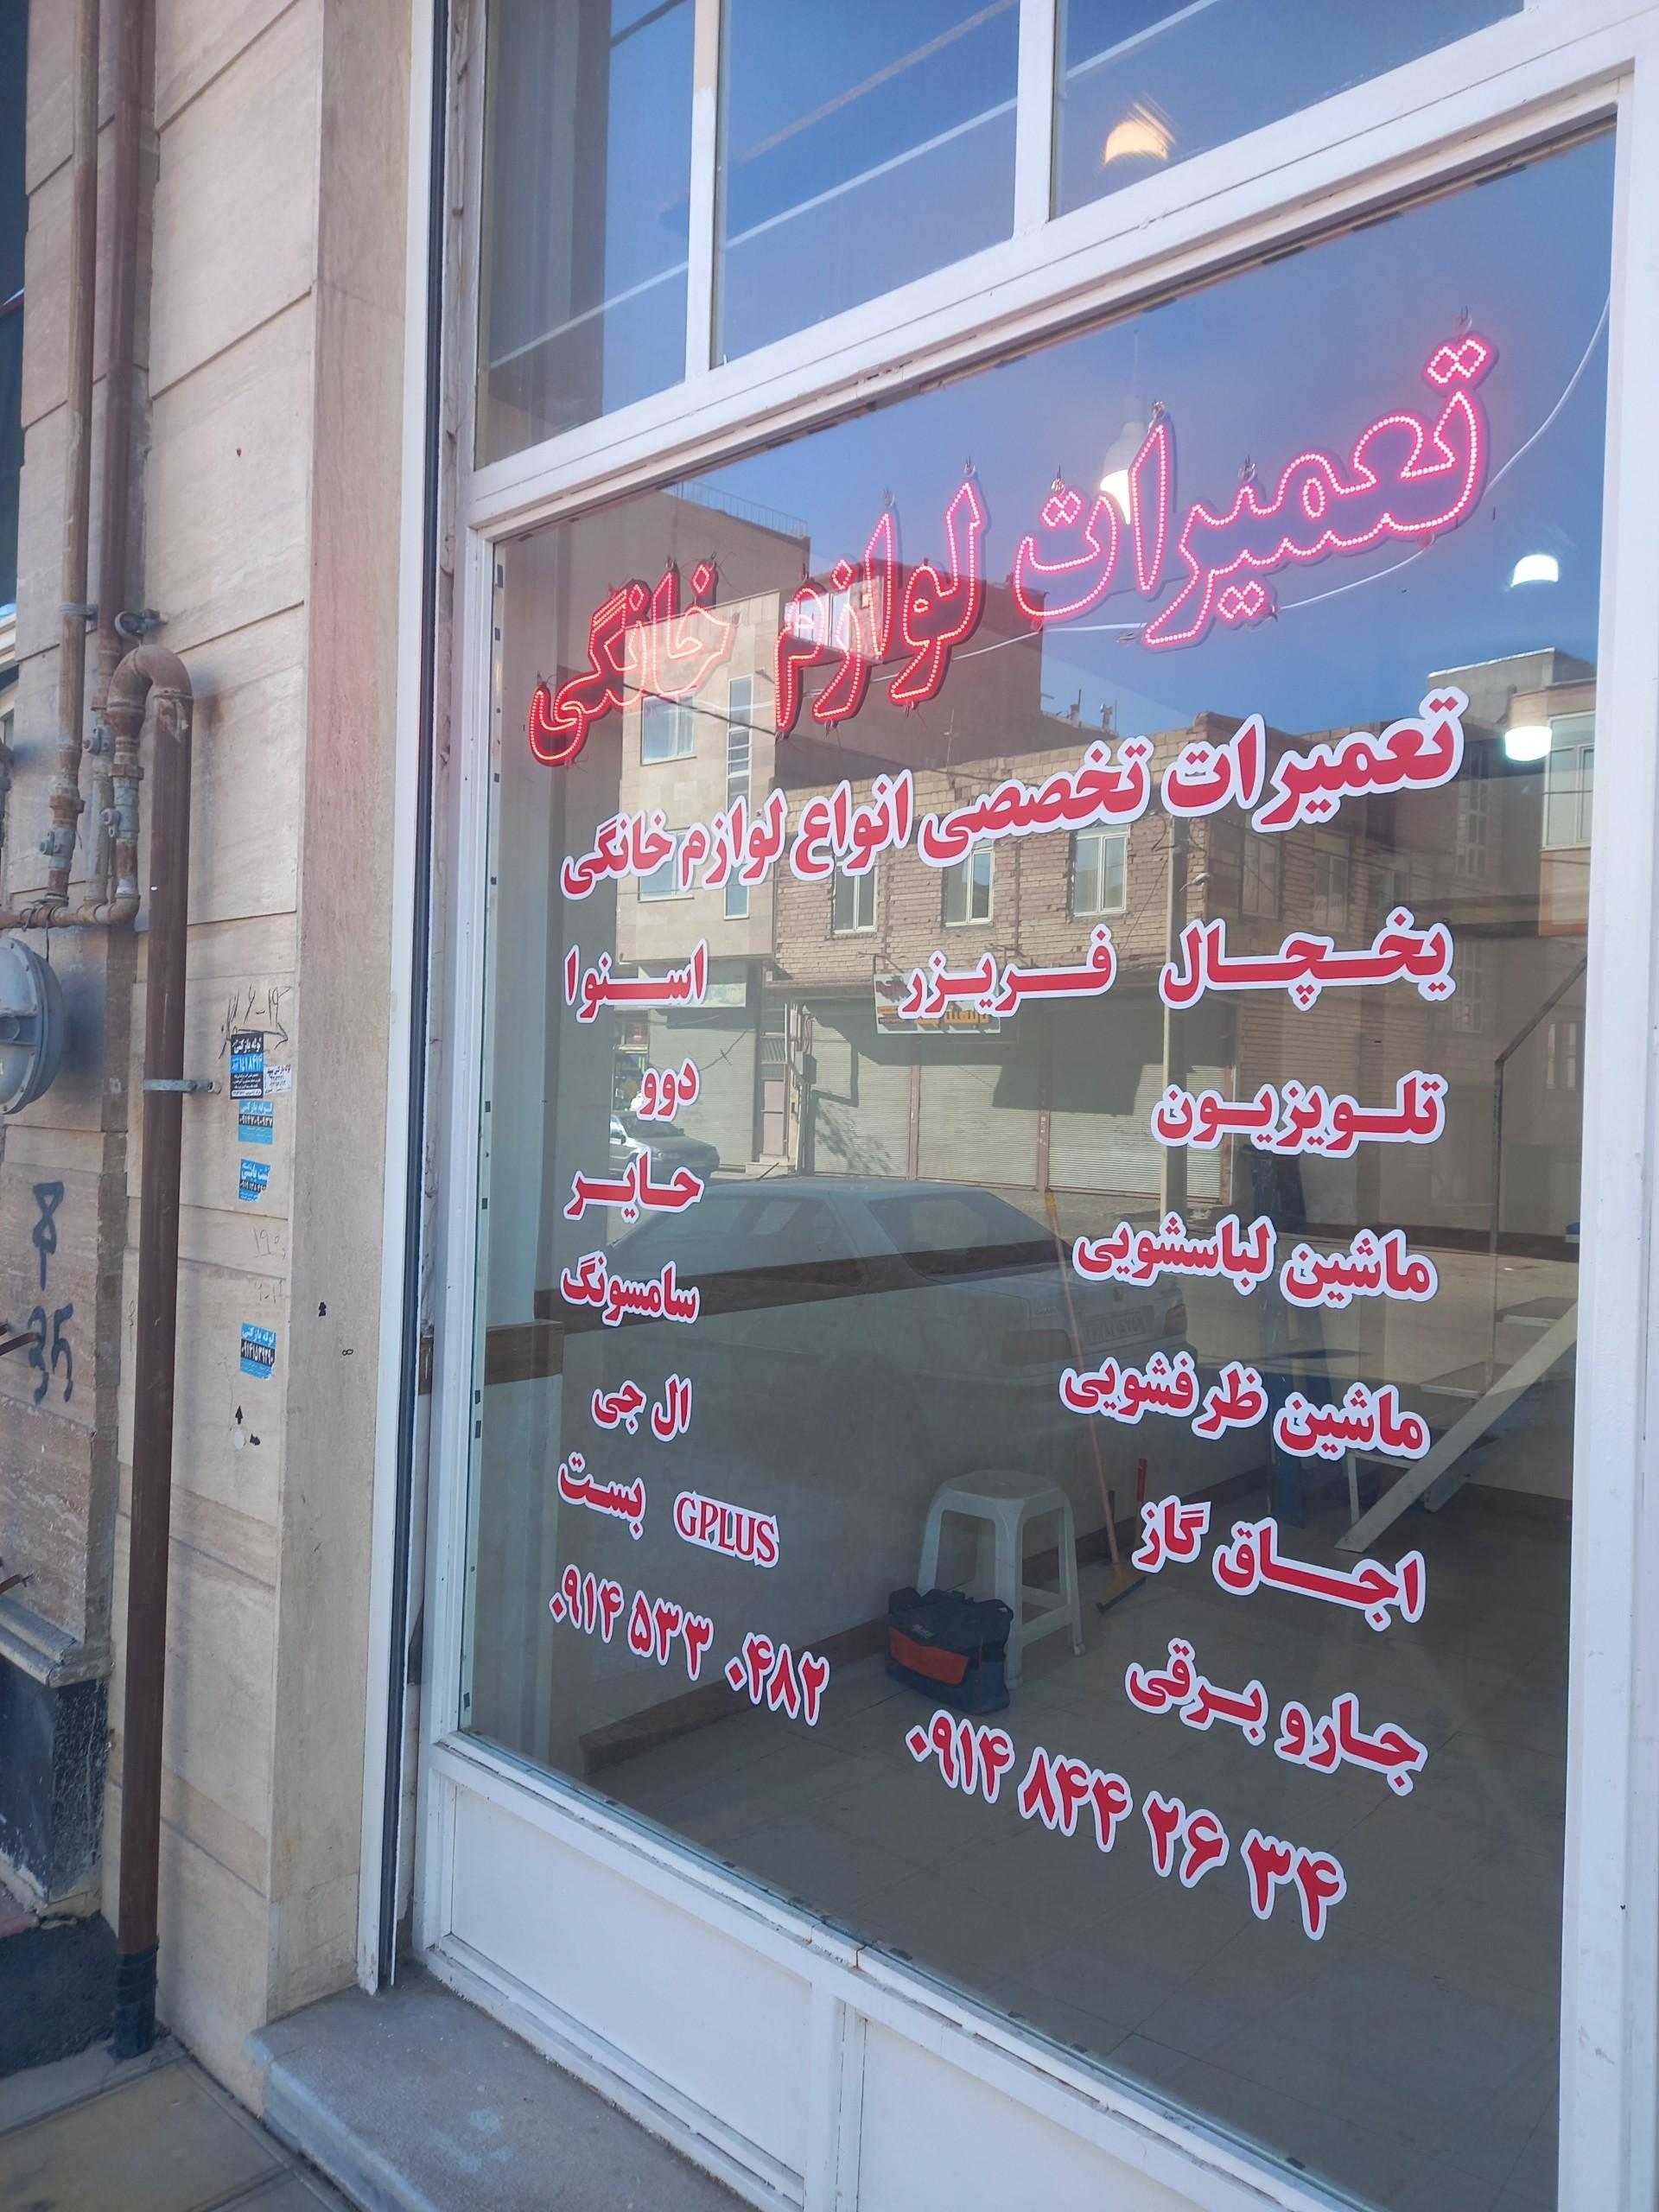 تعمیرات لوازم خانگی
تعمیرات تخصصی انواع لوازم خانگی
یخچال فریزر
اسنوا
تلویزیون
دوو
ماشین لباسشویی
حایر
ماشین ظرفشویی
سامسونگ
اجاق گاز
ال جی
جارو برقی
GPLUS بست
۰۹۱۴ ۵۳۳ ۰۴۸۲
۰۹۱۴ ۸۴۴ ۲۶ ۳۴
لوله بازکنی
لوله بازکنی
35